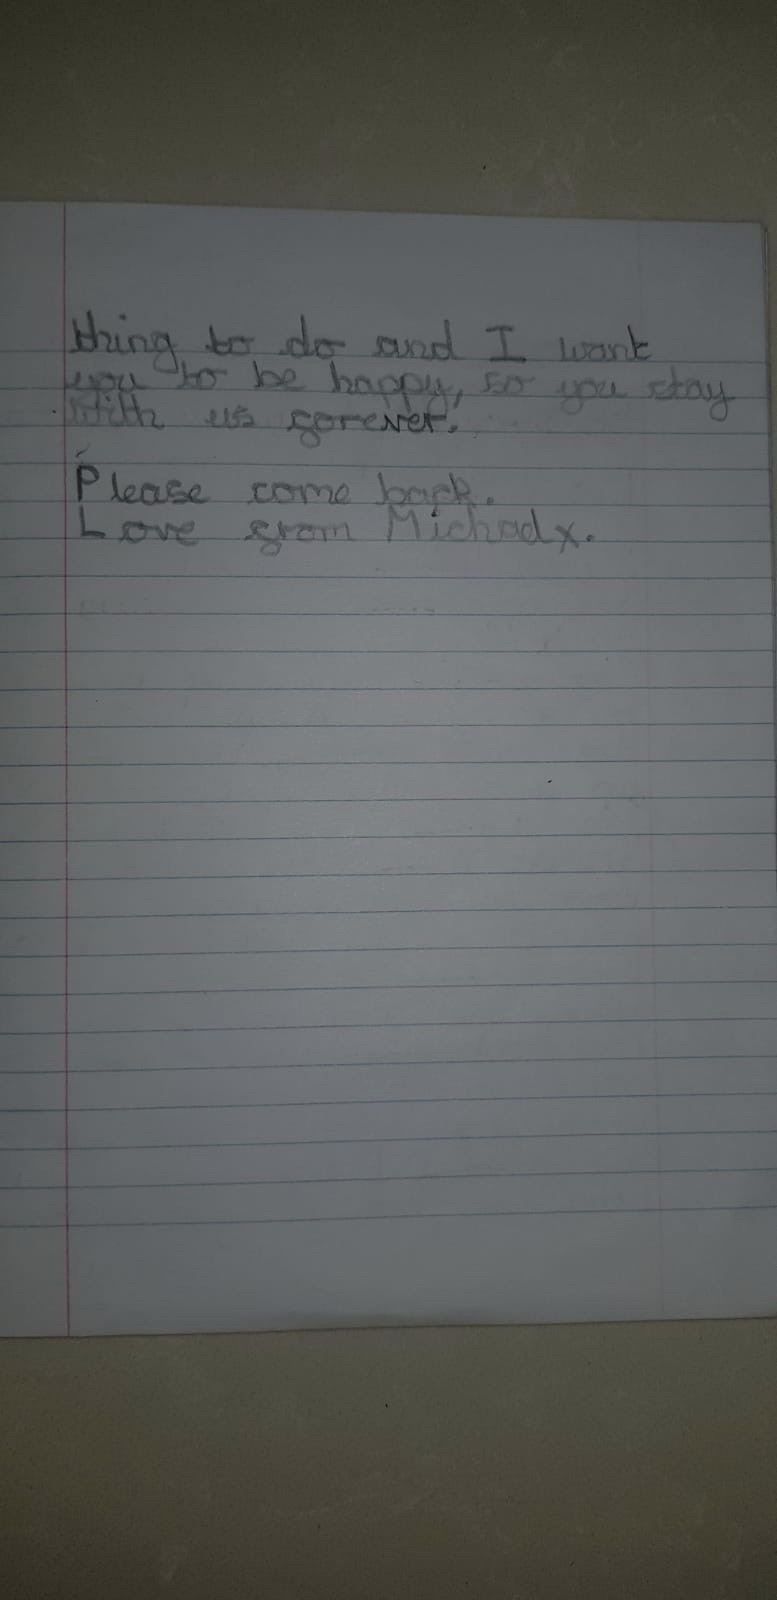 thing to do and I want
you to be happy, so you stay
with us forever.
Please come back.
Love from Michael x.